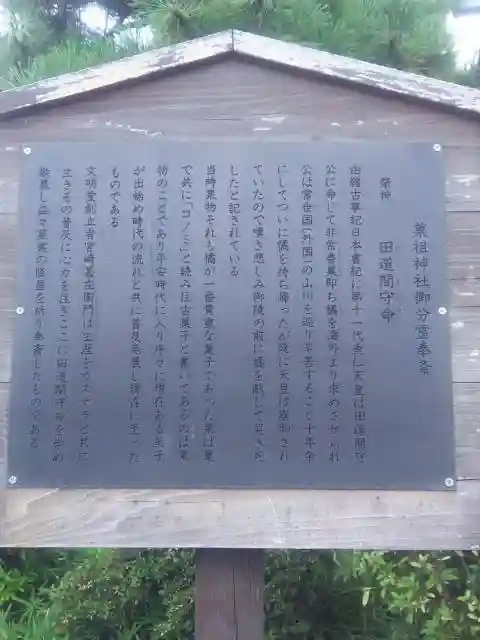 菓祖神社御分霊奉斎
祭神　田道間守命
由緒古事記日本書記に第十一代垂仁天皇は田道間守
公に命じて非常香菓即ち橘を海外より求めさせられ
公は常世国(外国)の山川を巡り辛苦すること十年余
にしてついに橘を持ち帰ったが既に天皇は崩御され
ていたので嘆き悲しみ御陵の前に橘を献じて泣き死
したと記されている
当時果物それも橘が一番貴重な菓子であった菓は果
で共に「コノミ」と読み往古菓子と書いてあるのは果
物のことであり平安時代に入り序々に現在ある菓子
が出始め時代の流れと共に普及発展し現在に至った
ものである
文明堂創立者宮崎甚左衛門は生涯をカステラと共に
生きその普及に心力を注ぎここに田道間守命を崇め
敬慕し益々菓業の隆昌を祈り奉斎したものである